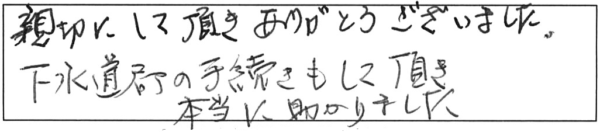 親切にして頂きありがとうございました。
下水道郡の手続きもして頂き
本当に助かりました